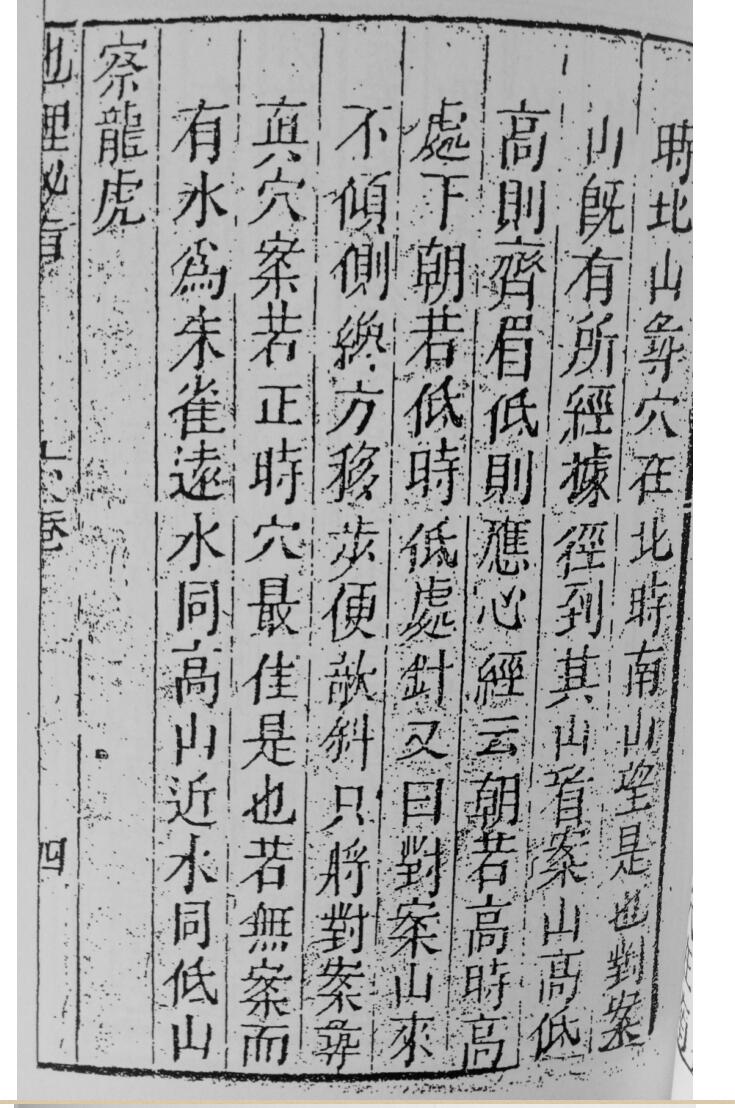 時北山尋穴在北時南山望是也對案
山旣有所經據徑到其山看案山高低
高則齊眉低則應心經云朝若高時高
處下朝若低時低處針又曰對案山來
不傾側纔方移步便欹斜只將對案尋
眞穴案若正時穴最佳是也若無案而
有水爲朱雀遠水同高山近水同低山
察龍虎
地理秘旨 卷 四